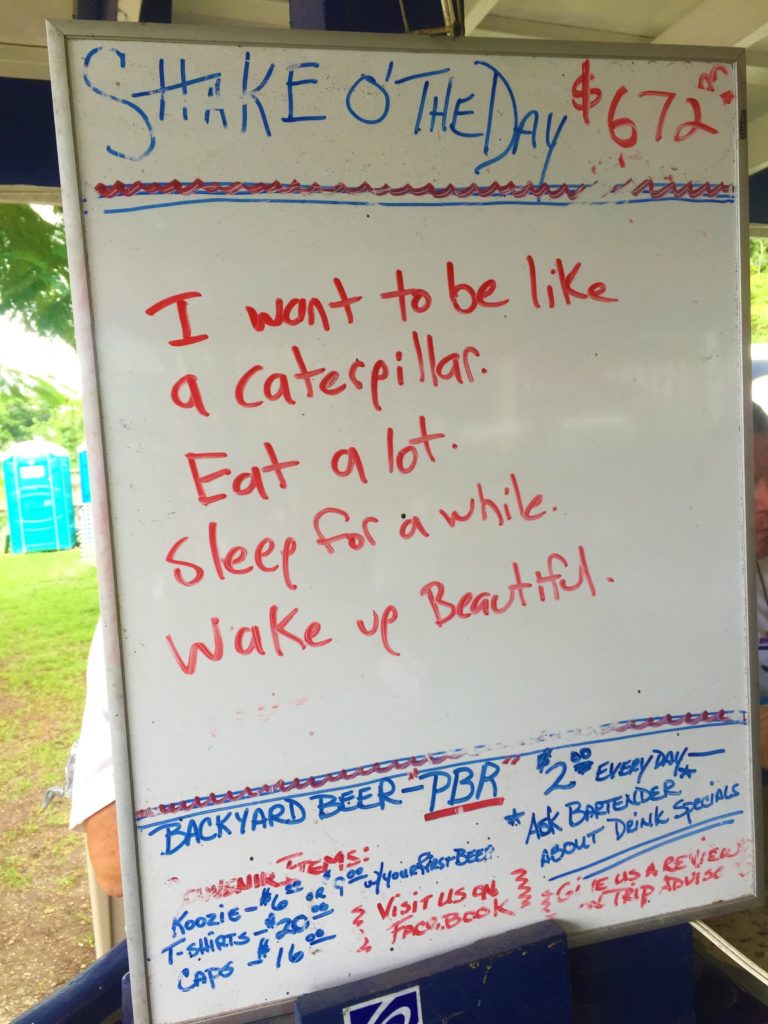 SHAKE O' THE DAY $672
I want to be like
a caterpillar.
Eat a lot.
Sleep for a while.
Wake up Beautiful.
BACKYARD BEER - "PBR" $2.00 EVERYDAY—
*ASK BARTENDER*
ABOUT DRINK SPECIALS
ITEMS:
KOOZIE - $6.00 OR $9.00 W/YOUR FIRST BEER
T-SHIRTS - $20.00
CAPS - $16.00
VISIT US ON
FACEBOOK
GIVE US A REVIEW
TRIP ADVISO